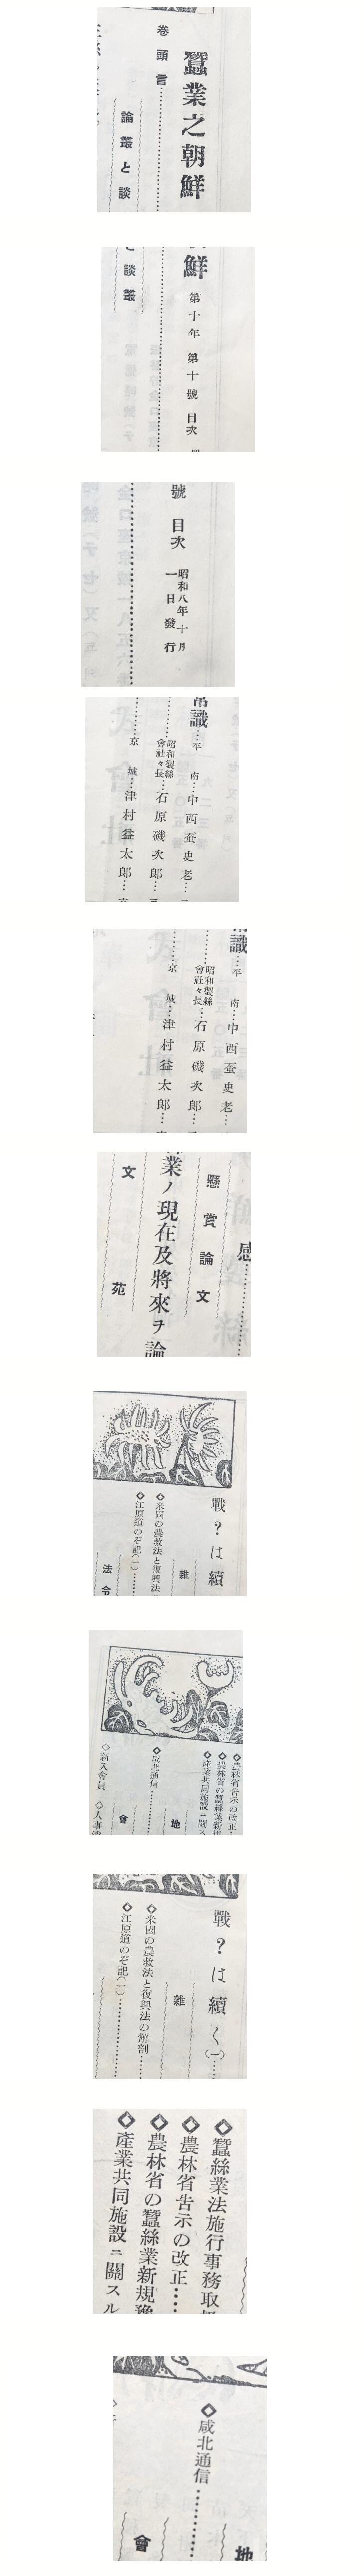 蠶業之朝鮮
卷頭言
論叢と談
鮮 第十年 第十號 目次
と談叢
號 目次 昭和八年十月
一日發行
常識…平南…中西蚕史老…
昭和製絲
會社々長…石原磯次郎…
京城…津村益太郎…
識…平南…中西蚕史老…
昭和製絲
會社々長…石原磯次郎…
京城…津村益太郎…
感
懸賞論文
業ノ現在及將來ヲ論
文苑
戰?は續
雜
◇米國の農救法と復興法
◇江原道のぞ記(一)
法令
◇農林省告示の改正
◇農林省の蠶絲業新規
◇產業共同施設ニ關ス
地
◇咸北通信
會
◇新入會員 ◇人事
戰?は續く(一)
雜
◇米國の農救法と復興法の解剖
◇江原道のぞ記(一)
◇蠶絲業法施行事務取
◇農林省告示の改正
◇農林省の蠶絲業新規
◇產業共同施設ニ關スル
地
◇咸北通信
會